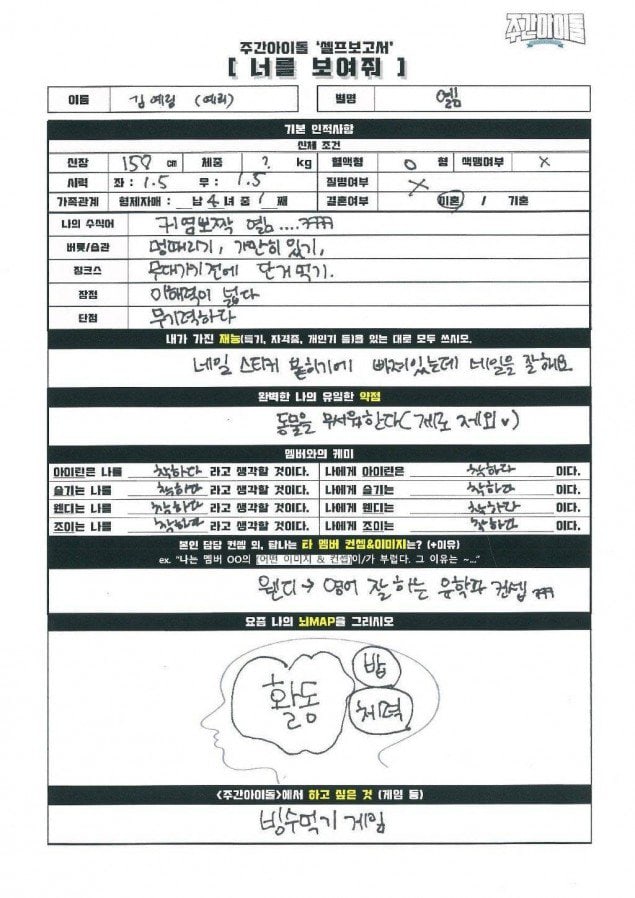 주간아이돌
주간아이돌 '셀프보고서'
[ 너를 보여줘 ]
이름 김예림 (예리) 별명 옐림
기본 인적사항
신체 조건
신장 158 cm 체중 ? kg 혈액형 O 형 색맹여부 X
시력 좌 : 1.5 우 : 1.5 질병여부 X
가족관계 형제자매 : 남 4 녀 중 1 째 결혼여부 미혼 / 기혼
나의 수식어 귀염뽀짝 옐림....ㅋㅋㅋㅋ
버릇/습관 멍때리기, 가만히 있기,
징크스 무대가기 전에 단거 먹기.
장점 이해력이 넓다
단점 무기력하다
내가 가진 재능(특기, 자격증, 개인기 등)을 있는 대로 모두 쓰시오.
네일 스티커 붙히기에 빠져있는데 네일을 잘해요
완벽한 나의 유일한 약점
동물을 무서워한다(제로 제외♥)
멤버와의 케미
아이린은 나를 착하다 라고 생각할 것이다. 나에게 아이린은 착하다 이다.
슬기는 나를 착하다 라고 생각할 것이다. 나에게 슬기는 착하다 이다.
웬디는 나를 착하다 라고 생각할 것이다. 나에게 웬디는 착하다 이다.
조이는 나를 착하다 라고 생각할 것이다. 나에게 조이는 착하다 이다.
본인 담당 컨셉 외, 탐나는 타 멤버 컨셉&이미지는? (+이유)
ex. "나는 멤버 OO의 [어떤 이미지 & 컨셉]이/가 부럽다. 그 이유는 ~..."
웬디 → 영어 잘하는 유학파 컨셉 ㅋㅋㅋ
요즘 나의 뇌MAP을 그리시오
밥
활동
체력
<주간아이돌>에서 하고 싶은 것 (게임 등)
빙수먹기 게임